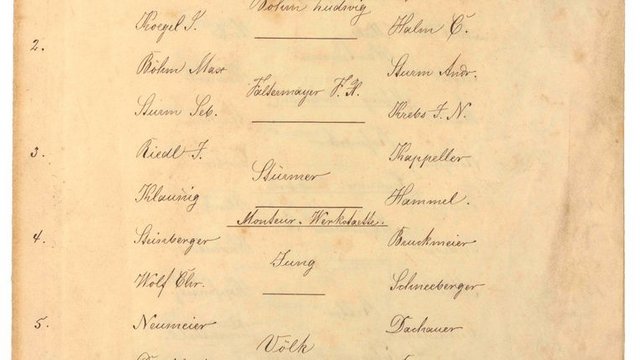 Böhm Ludwig
Koegel S. Halm C.
2.
Böhm Max Sturm Andr.
Faltermayer F. X.
Sturm Seb. Krebs J. N.
3. Riedl J. Kappeller
Stürmer
Klaunig Hammel.
Monteur-Werkstaette.
4. Steinberger Bruckmeier
Jung
Wolf Chr. Schneeberger
5. Neumeier Dachauer
Völk